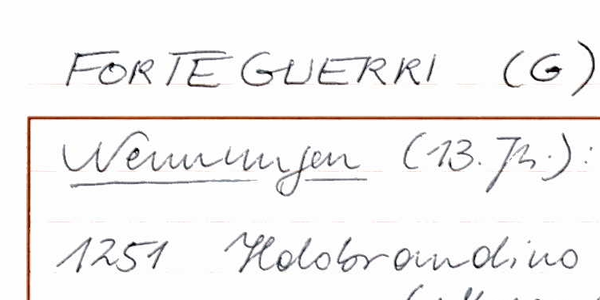 FORTEGUERRI (G)
Nennungen (13. Jh.):
1251 Ildobrandino